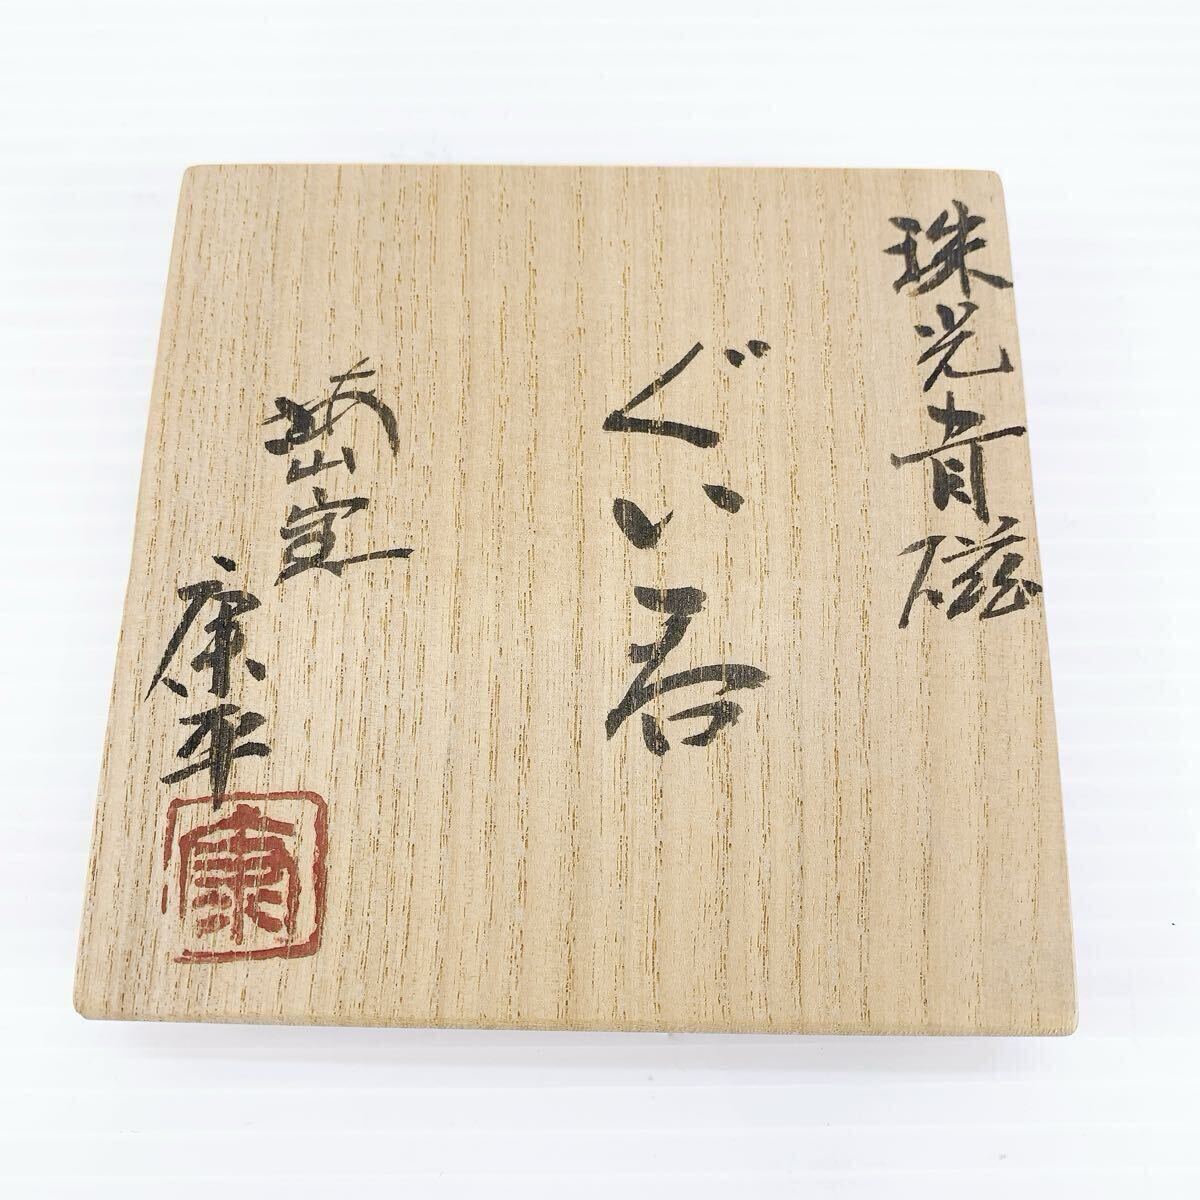 珠光青磁
ぐい呑
山窯
康平
康